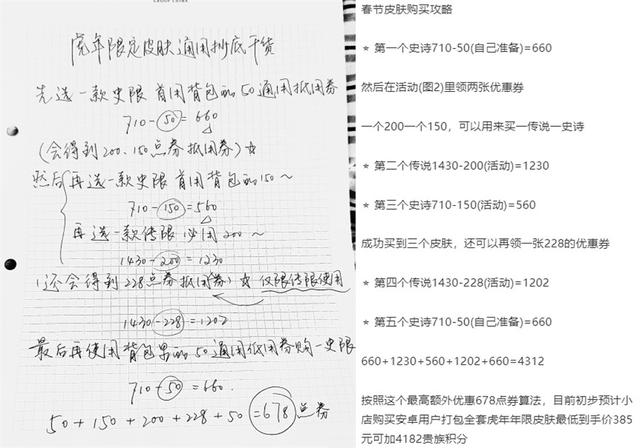 虎年限定皮肤通用抄底干货
先选一款史限 首用背包的50通用抵用券
710-50=660
(会得到200、150点券抵用券)☆
然后再选一款史限 首用背包的150~
710-150=560
再选一款传限 必用200~
1430-200=1230
(还会得到228点券抵用券)☆ 仅限传限使用
1430-228=1202
最后再使用背包里的50通用抵用券购一史限
710-50=660.
50+150+200+228+50=678点券
春节皮肤购买攻略
* 第一个史诗710-50(自己准备)=660
然后在活动(图2)里领两张优惠券
一个200一个150，可以用来买一传说一史诗
* 第二个传说1430-200(活动)=1230
* 第三个史诗710-150(活动)=560
成功买到三个皮肤，还可以再领一张228的优惠券
* 第四个传说1430-228(活动)=1202
* 第五个史诗710-50(自己准备)=660
660+1230+560+1202+660=4312
按照这个最高额外优惠678点券算法，目前初步预计小
店购买安卓用户打包全套虎年年限皮肤最低到手价385
元可加4182贵族积分